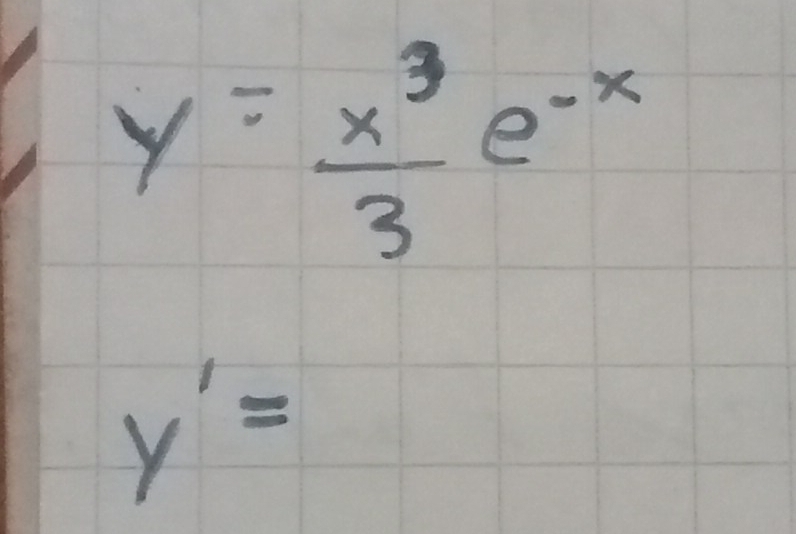 y = x³/3 e⁻ˣ
y' =